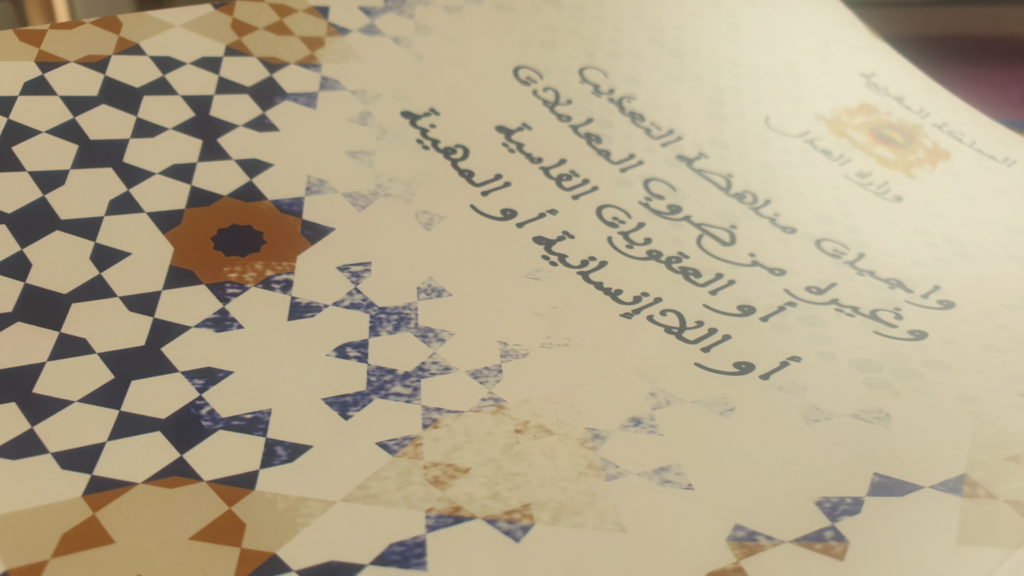 المملكة المغربية
وزارة العدل
واجبات مناهضة التعذيب
وغيره من ضروب المعاملات
أو العقوبات القاسية
أو اللاإنسانية أو المهينة